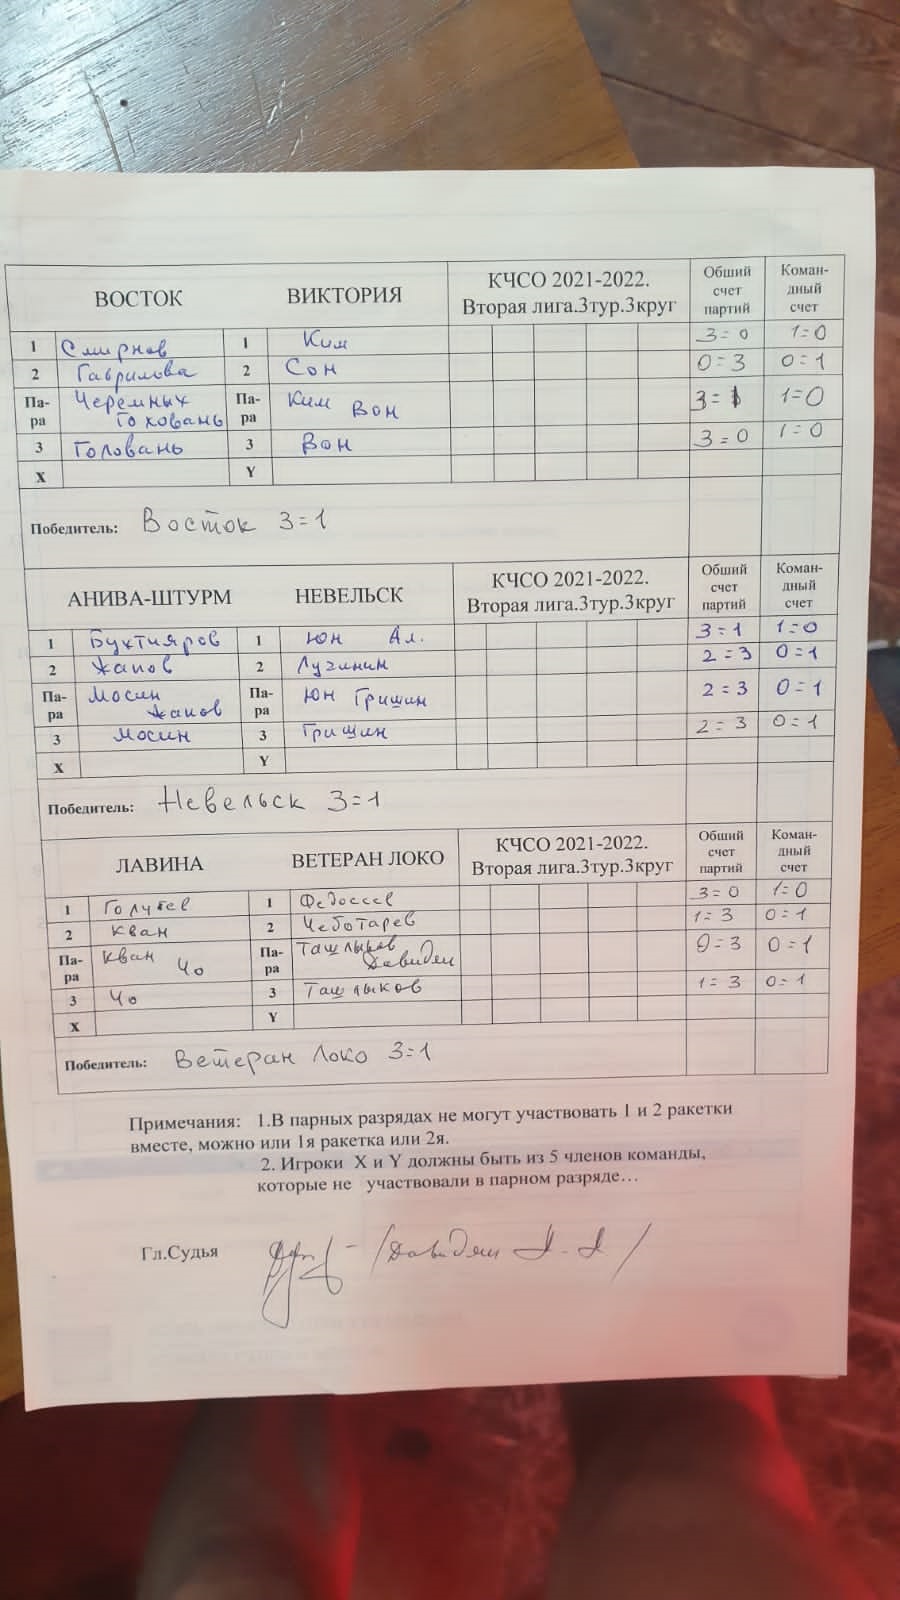 ВОСТОК ВИКТОРИЯ КЧСО 2021-2022. Вторая лига.3тур.3круг Обший счет партий Коман-дный счет
1 Смирнов 1 Ким 3=0 1=0
2 Гаврилова 2 Сон 0=3 0=1
Па-ра Черемных Головань Па-ра Ким Вон 3=1 1=0
3 Головань 3 Вон 3=0 1=0
X Y
Победитель: Восток 3=1
АНИВА-ШТУРМ НЕВЕЛЬСК КЧСО 2021-2022. Вторая лига.3тур.3круг Обший счет партий Коман-дный счет
1 Бухтияров 1 Юн Ал. 3=1 1=0
2 Жапов 2 Лучинин 2=3 0=1
Па-ра Мосин Жапов Па-ра Юн Гришин 2=3 0=1
3 Мосин 3 Гришин 2=3 0=1
X Y
Победитель: Невельск 3=1
ЛАВИНА ВЕТЕРАН ЛОКО КЧСО 2021-2022. Вторая лига.3тур.3круг Обший счет партий Коман-дный счет
1 1 3=0 1=0
2 Кван 2 Чеботарев 1=3 0=1
Па-ра Кван Чо Па-ра Ташлыков Давидян 0=3 0=1
3 Чо 3 Ташлыков 1=3 0=1
X Y
Победитель: Ветеран Локо 3=1
Примечания: 1.В парных разрядах не могут участвовать 1 и 2 ракетки
вместе, можно или 1я ракетка или 2я.
2. Игроки X и Y должны быть из 5 членов команды,
которые не участвовали в парном разряде…
Гл.Судья /Давидян А.А/